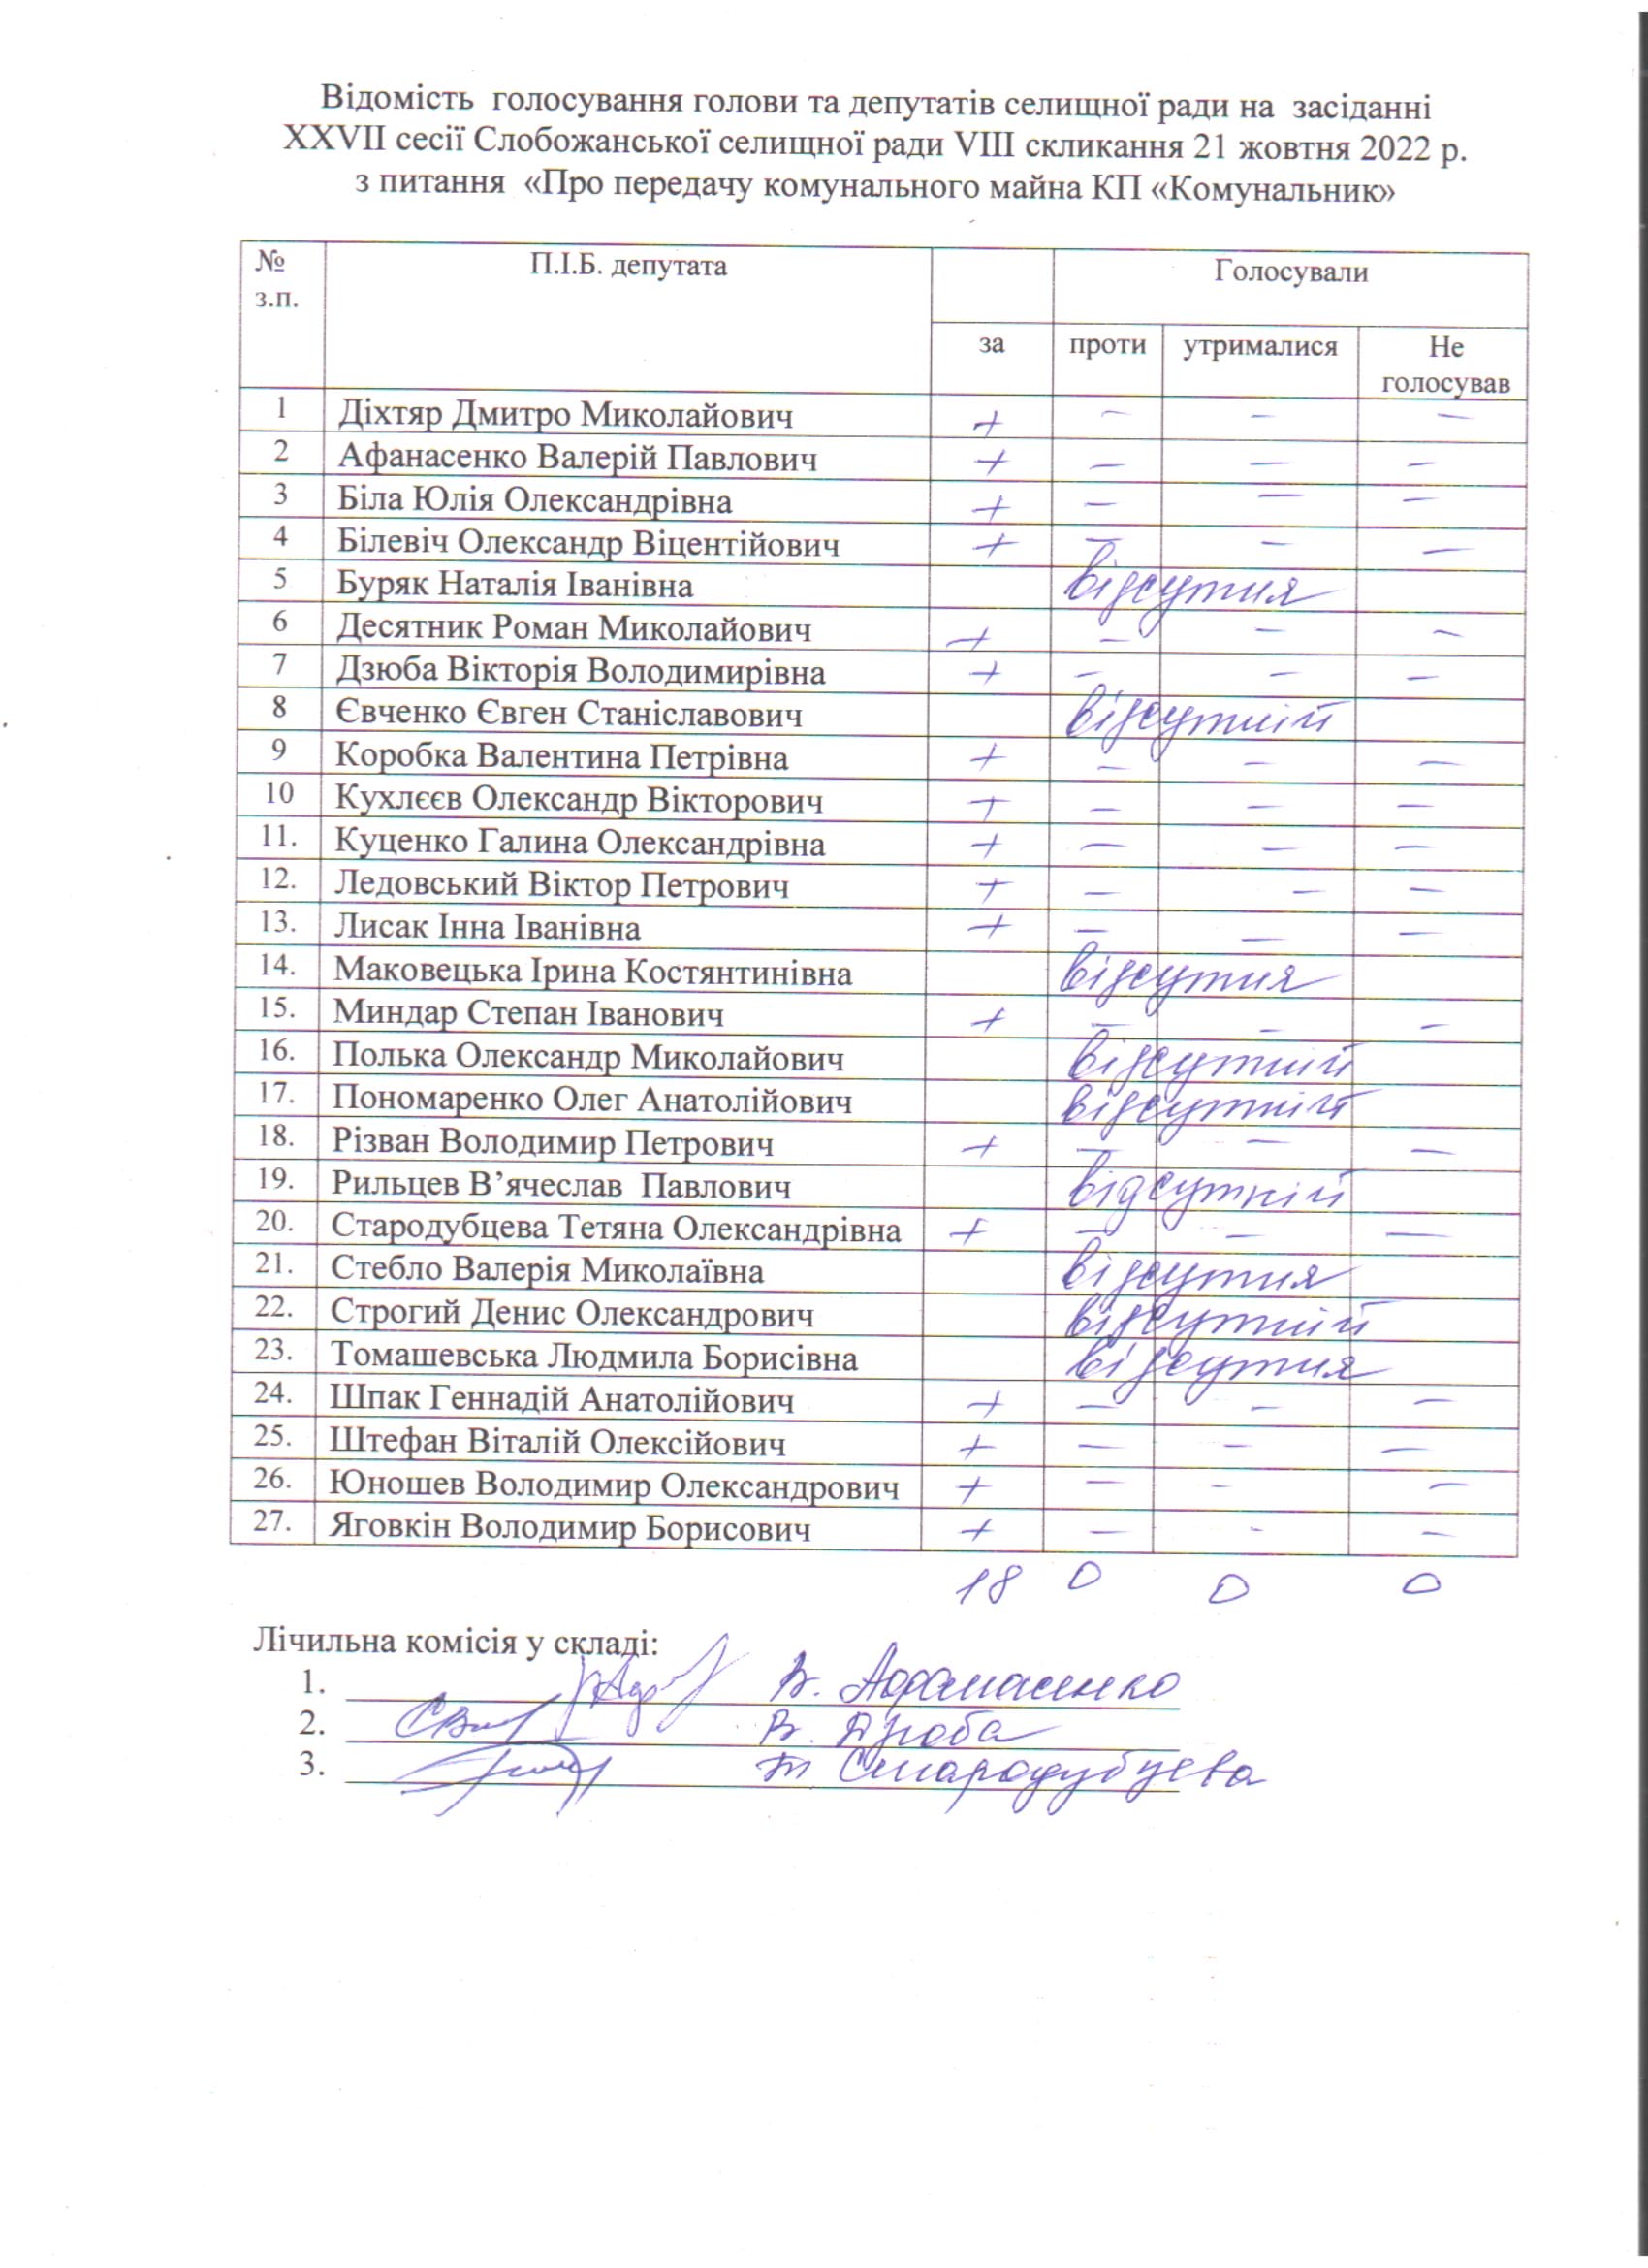 Відомість голосування голови та депутатів селищної ради на засіданні
XXVII сесії Слобожанської селищної ради VIII скликання 21 жовтня 2022 р.
з питання «Про передачу комунального майна КП «Комунальник»
№ з.п. П.І.Б. депутата Голосували
за проти утрималися Не голосував
1 Діхтяр Дмитро Миколайович + – – –
2 Афанасенко Валерій Павлович + – – –
3 Біла Юлія Олександрівна + – – –
4 Білевіч Олександр Віцентійович + – – –
5 Буряк Наталія Іванівна відсутня
6 Десятник Роман Миколайович + – – –
7 Дзюба Вікторія Володимирівна + – – –
8 Євченко Євген Станіславович відсутній
9 Коробка Валентина Петрівна + – – –
10 Кухлєєв Олександр Вікторович + – – –
11. Куценко Галина Олександрівна + – – –
12. Ледовський Віктор Петрович + – – –
13. Лисак Інна Іванівна + – – –
14. Маковецька Ірина Костянтинівна відсутня
15. Миндар Степан Іванович + – – –
16. Полька Олександр Миколайович відсутній
17. Пономаренко Олег Анатолійович відсутній
18. Різван Володимир Петрович + – – –
19. Рильцев В’ячеслав Павлович відсутній
20. Стародубцева Тетяна Олександрівна + – – –
21. Стебло Валерія Миколаївна відсутня
22. Строгий Денис Олександрович відсутній
23. Томашевська Людмила Борисівна відсутня
24. Шпак Геннадій Анатолійович + – – –
25. Штефан Віталій Олексійович + – – –
26. Юношев Володимир Олександрович + – – –
27. Яговкін Володимир Борисович + – – –
18 0 0 0
Лічильна комісія у складі:
1. В. Афанасенко
2. В. Дзюба
3. Т Стародубцева